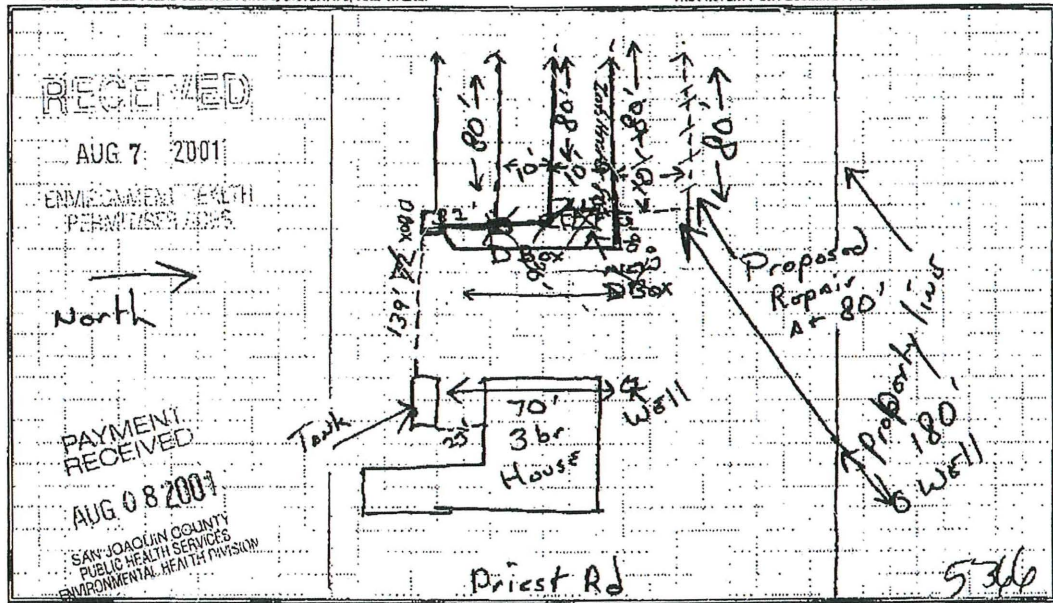 RECEIVED
AUG 7 2001
ENVIRONMENT HEALTH
PERMIT/SERVICES
North
PAYMENT
RECEIVED
AUG 08 2001
SAN JOAQUIN COUNTY
PUBLIC HEALTH SERVICES
ENVIRONMENTAL HEALTH DIVISION
80'
10'
80'
10'
80'
80'
D Box
139'
D Box
D Box
Proposed
Ropair
At 80'
Property line
180'
Well
Tank
25'
70'
3 br
House
Well
Priest Rd
5366